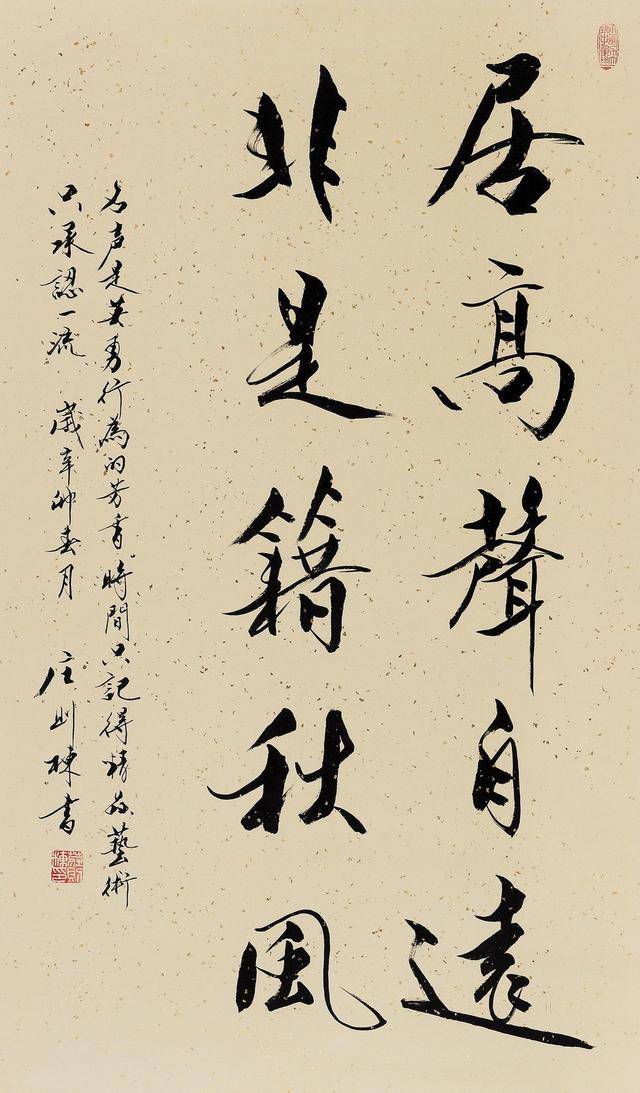 居高聲自遠
非是籍秋風
名声是英勇行為的芳香時間只記得精品藝術
只承認一流 歲辛卯春月 庄則棟書